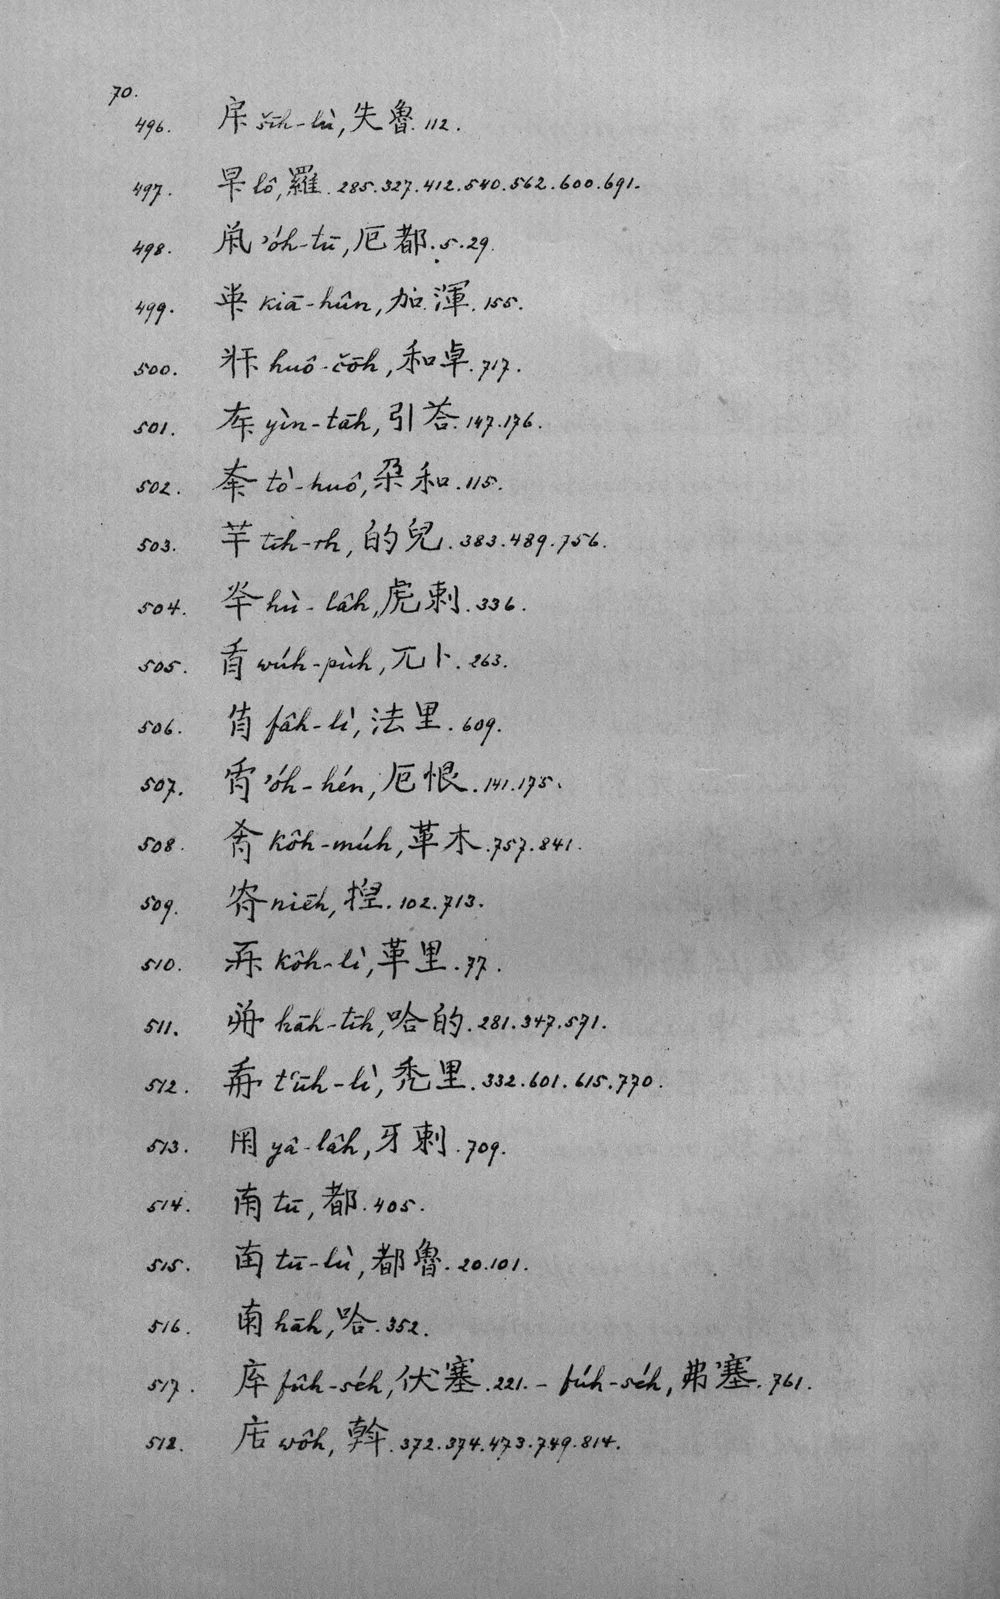 70.
496. šīh-lù, 失魯. 112.
497. lô, 羅. 285.327.412.540.562.600.691.
498. 'óh-tū, 厄都. 5.29.
499. kiā-hûn, 加渾. 155.
500. huô-čōh, 和卓. 717.
501. yìn-tāh, 引荅. 147.176.
502. tò-huô, 朶和. 115.
503. tīh-rh, 的兒. 383.489.756.
504. hù-lâh, 虎剌. 336.
505. wúh-pùh, 兀卜. 263.
506. fâh-lì, 法里. 609.
507. 'óh-hén, 厄恨. 141.175.
508. kôh-múh, 革木. 757.841.
509. niēh, 揑. 102.713.
510. kôh-lì, 革里. 77.
511. hāh-tīh, 哈的. 281.347.571.
512. t'ūh-lì, 禿里. 332.601.615.770.
513. yâ-lâh, 牙剌. 709.
514. tū, 都. 405.
515. tū-lù, 都魯. 20.101.
516. hāh, 哈. 352.
517. fûh-séh, 伏塞. 221. – fúh-séh, 弗塞. 761.
518. wôh, 斡. 372.374.473.749.814.